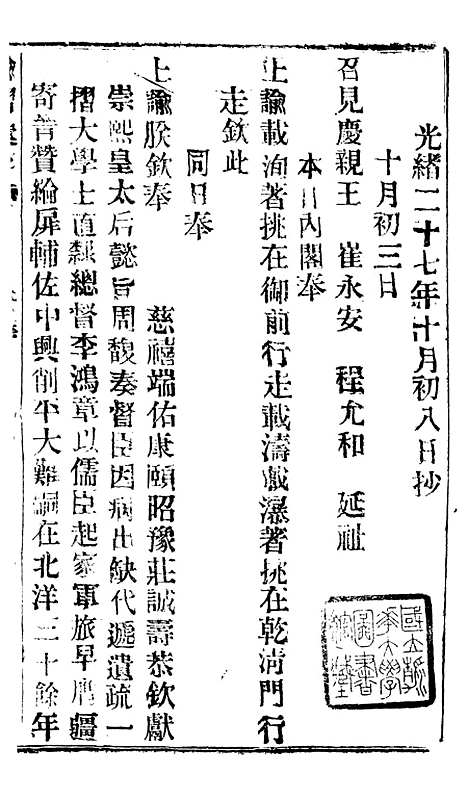 光緒二十七年十月初八日抄
十月初三日
召見慶親王　崔永安　程允和　延祉
本日內閣奉
上諭載洵著挑在御前行走載濤載瀛著挑在乾清門行
走欽此
同日奉
上諭朕欽奉　慈禧端佑康頤昭豫莊誠壽恭欽獻
崇熙皇太后懿旨周馥奏督臣因病出缺代遞遺疏一
摺大學士直隸總督李鴻章以儒臣起家軍旅早膺疆
寄晉贊綸扉輔佐中興削平大難嗣在北洋三十餘年
國立清華大學圖書館藏